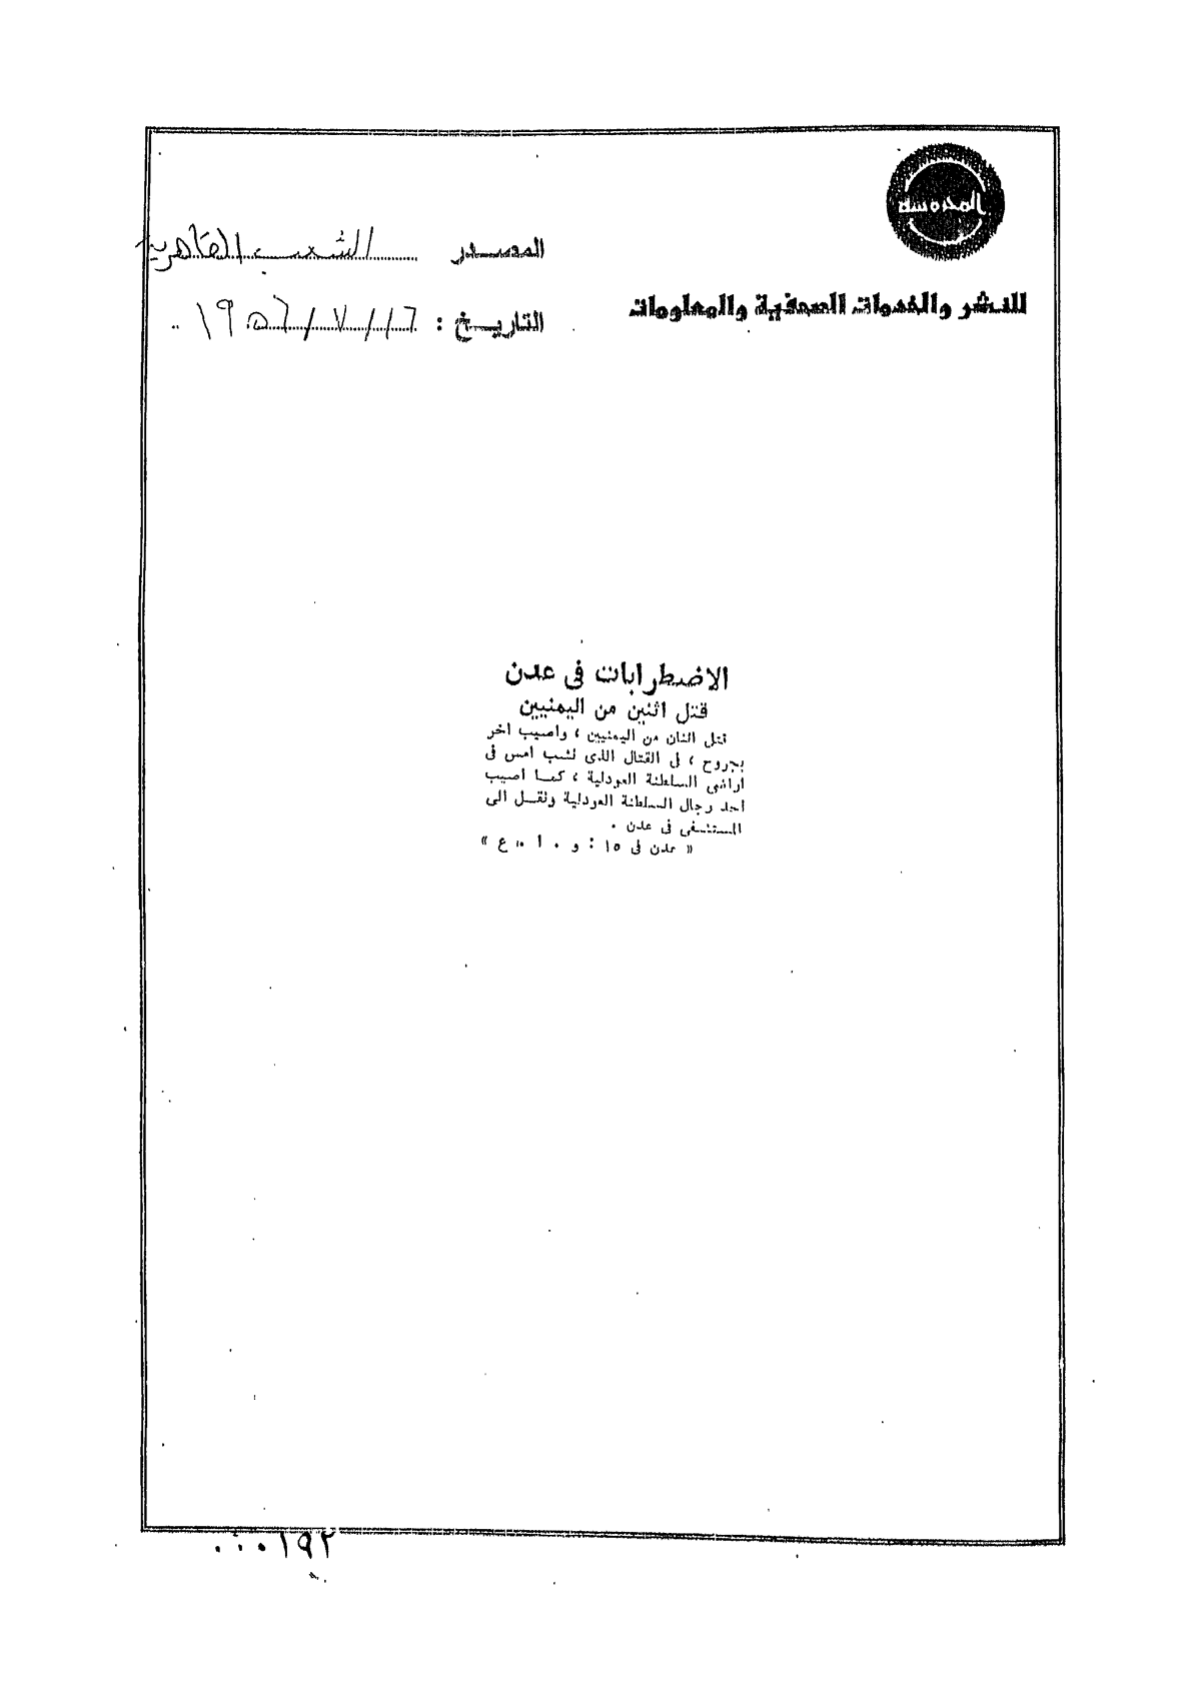 المحروسة
للنشر والخدمات الصحفية والمعلومات
المصدر الشعب القاهرية
التاريخ : ١٦/٧/١٩٥٦
الاضطرابات فى عدن
قتل اثنين من اليمنيين
قتل اثنان من اليمنيين ، واصيب اخر
بجروح ، فى القتال الذى نشب امس فى
اراضى السلطنة العودلية ، كما اصيب
احد رجال السلطنة العودلية ونقل الى
المستشفى فى عدن .
« عدن فى ١٥ : و . ا . ع »
٠٠٠١٩٢